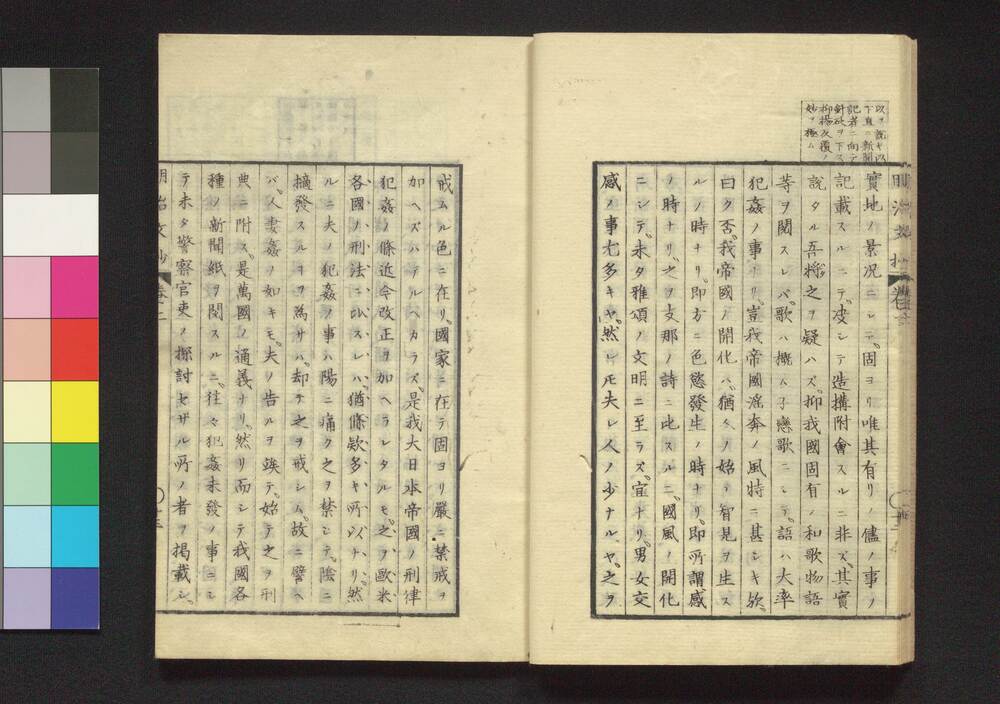 以テ説キ以
下直ニ新聞
記者ニ向テ
針砭ヲ下ス
抑揚反覆ノ
妙ヲ極ム
明治文抄
實地ノ景况ニシテ固ヨリ唯其有リノ儘ノ事ノ
記載スルニテ決シテ造搆附會スルニ非ズ其實
説タル吾將之ヲ疑ハズ抑我國固有ノ和歌物語
等ヲ閲スレバ歌ハ概ム子戀歌ニシテ語ハ大率
犯姦ノ事ナリ豈我帝國滛奔ノ風特ニ甚シキ欤
曰ク否我帝國ノ開化ハ猶人ノ始テ智見ヲ生ス
ルノ時ナリ即方ニ色慾發生ノ時ナリ即所謂感
ノ時ナリ之ヲ支那ノ詩ニ比スルニ國風ノ開化
ニシテ未タ雅頌ノ文明ニ至ラズ宜ナリ男女交
感ノ事尤多キヤ然レ𪜈夫レ人ノ少ナルヤ之ヲ
戒ムル色ニ在リ國家ニ在テ固ヨリ嚴ニ禁戒ヲ
加ヘズハアルヘカラズ是我大日本帝國ノ刑律
犯姦ノ條近今改正ヲ加ヘラレタルモ之ヲ歐米
各國ノ刑法ニ比スレハ猶條欵多キ所以ナリ然
ルニ夫ノ犯姦ノ事ハ陽ニ痛ク之ヲ禁シテ陰ニ
擿發スルヲ為サハ却テ之ヲ戒シム故ニ譬ヘ
バ人妻姦ノ如キモ夫ノ告ルヲ竢テ始テ之ヲ刑
典ニ附ス是萬國ノ通義ナリ然リ而シテ我國各
種ノ新聞紙ヲ閲スルニ往々犯姦未發ノ事ニシ
テ未タ警察官吏ノ探討セザル所ノ者ヲ掲載シ
明治文抄